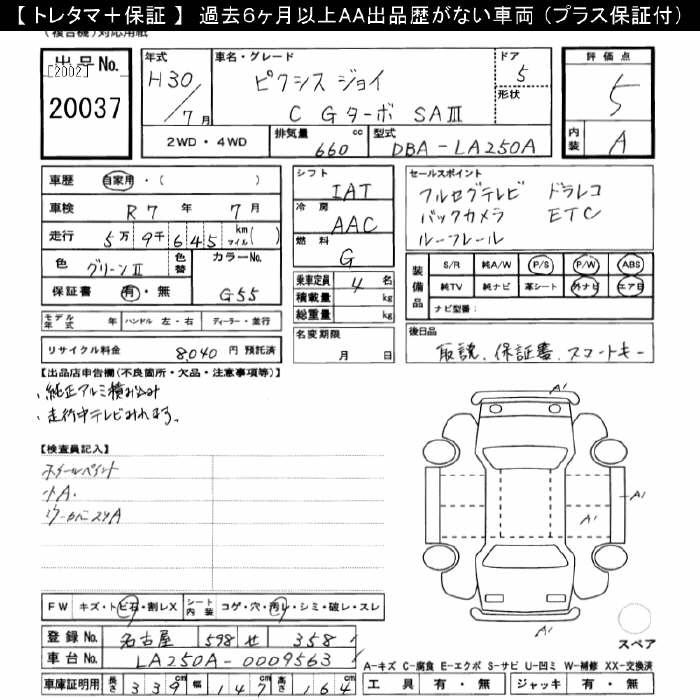 【 トレタマ＋保証 】 過去6ヶ月以上AA出品歴がない車両（プラス保証付）
(複合機)対応用紙
出品No.
[2002]
20037
年式
H30／7月
車名・グレード
ピクシス ジョイ
C Gターボ SAⅢ
ドア
5
形状
評価点
5
内装
A
2WD・4WD
排気量
660 cc
型式
DBA-LA250A
車歴 自家用・( )
車検 R7年 7月
走行 5万9千645 km マイル( )
色 グリーンⅡ
色替
カラーNo.
G55
保証書 有・無
シフト
IAT
冷房
AAC
燃料
G
乗車定員 4名
積載量 kg
総重量 kg
名変期限
月 日
セールスポイント
フルセグテレビ ドラレコ
バックカメラ ETC
ルーフレール
装備品
S/R 純A/W P/S P/W ABS
純TV 純ナビ 革シート 外ナビ エアB
ナビ型番:
モデル年式 年 ハンドル 左・右 ディーラー・並行
リサイクル料金 8,040円 預託済
後日品
取説、保証書、スマートキー
【出品店申告欄(不良箇所・欠品・注意事項等)】
・純正アルミ積み込み
・走行中テレビみれます。
【検査員記入】
ホイールペイント
小A.
A'
A'
A'
A'
スペア
FW キズ・トビ石・割レX
シート内装 コゲ・穴・汚レ・シミ・破レ・スレ
登録No. 名古屋 598 せ 358
車台No. LA250A-0009563
車庫証明用 長さ 339cm 幅 147cm 高さ 164cm
A-キズ C-腐食 E-エクボ S-サビ U-凹ミ W-補修 XX-交換済
工具 有・無 ジャッキ 有・無